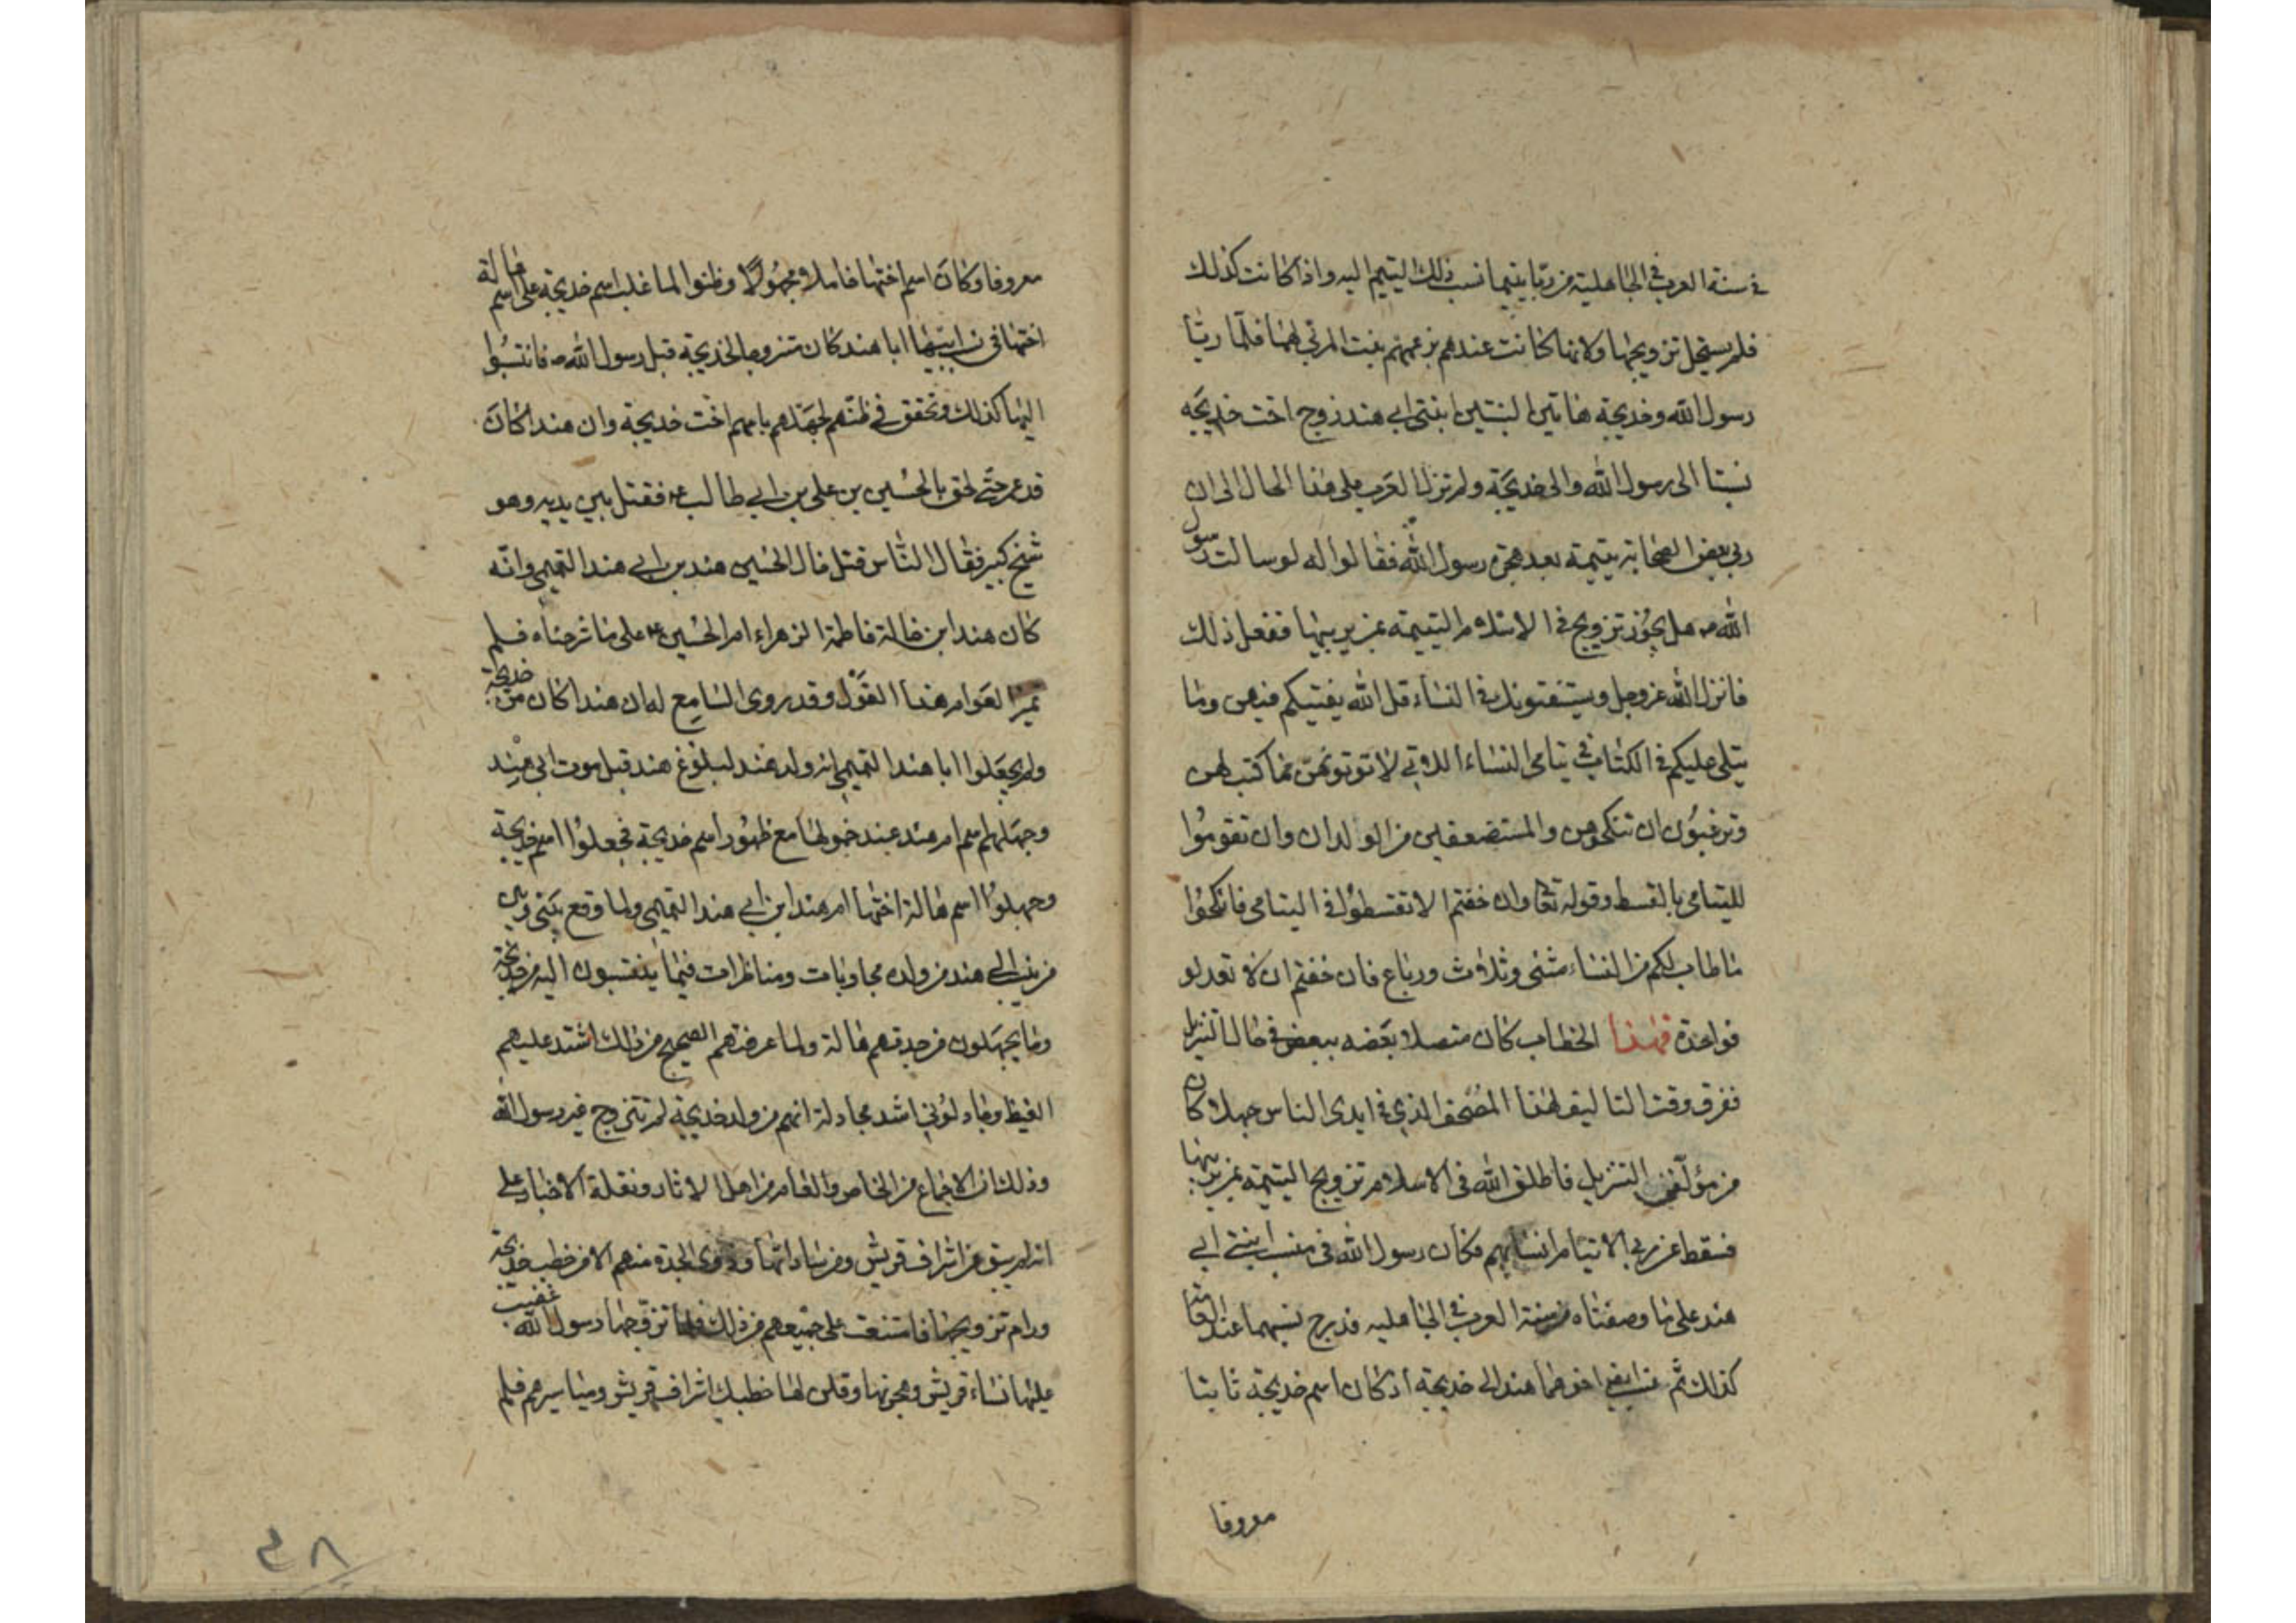 في سنة العرب في الجاهلية من ربا يتيما نسب ذلك اليتيم اليه واذا كانت كذلك
فلم يستحل تزويجها ولانها كانت عندهم بزعمهم بنت المربي لها فلما ربا
رسول الله وخديجة هاتين البنتين ابنتي ابي هند زوج اخت خديجة
نسبتا الى رسول الله والى خديجة ولم تزل العرب على هذا الحال الى ان
ربى بعض الصحابة يتيمة بعد هجرة رسول الله فقالوا له لو سالت رسول
الله ص هل يجوز تزويج في الاسلام اليتيمة ممن يربيها ففعل ذلك
فانزل الله عز وجل ويستفتونك في النساء قل الله يفتيكم فيهن وما
يتلى عليكم في الكتاب في يتامى النساء اللاتي لا توتونهن مما كتب لهن
وترغبون ان تنكحوهن والمستضعفين من الولدان وان تقوموا
لليتامى بالقسط وقوله تعا وان خفتم الا تقسطوا في اليتامى فانكحوا
ما طاب لكم من النساء مثنى وثلاث ورباع فان خفتم ان لا تعدلو
فواحدة فهذا الخطاب كان متصلا بعضه ببعض في حال التنزيل
ففرق وقت التاليف لهذا المصحف الذي في ايدى الناس جهلا كان
من مؤلفى التنزيل فاطلق الله فى الاسلام تزويج اليتيمة ممن يربيها
فسقط عن ربي الايتام انسابهم فكان رسول الله فى نسب ابنتي ابي
هند على ما وصفناه من سنة العرب في الجاهليه فدرج نسبهما عند العامة
كذلك ثم نسب اخوهما هند الى خديجة اذ كان اسم خديجة ثابتا
معروفا
معروفا وكان اسم اختها خاملا مجهولا وظنوا لما غلب اسم خديجة على اسم هالة
اختها في نسب ابنيها ابا هند كان متزوجا لخديجة قبل رسول الله ص فانتسبوا
اليها كذلك وتحقق في ظنهم لجهلهم بامهم اخت خديجة وان هندا كان
قد عمر حتى لحق بالحسين بن علي بن ابي طالب ع فقتل بين يديه وهو
شيخ كبير فقال الناس قتل خال الحسين هند بن ابي هند التميمي وانه
كان هند ابن خالة فاطمة الزهراء ام الحسين ع على ما شرحناه فلم
تميز العوام هذا القول وقدر وى السامع له ان هندا كان من خديجة
ولم يجعلوا ابا هندا التميمي انه ولد هند لبلوغ هند قبل موت ابي هند
وجهلهم اسم ام هند عند خمولها مع ظهور اسم خديجة فجعلوا اسم خديجة
وجهلوا اسم هالة اختها ام هند ابن ابي هند التميمي ولما وقع بيني وبين
من ينسب الى هند من ولده مجاوبات ومناظرات فيما ينتسبون اليه من خديجة
وما يجهلون من جدتهم هالة ولما عرفتهم الصحيح من ذلك اشتد عليهم
الغيظ وجادلوني اشد مجادلة انهم من ولد خديجة لم تتزوج غير رسول الله
وذلك ان الاجماع من الخاص والعام من اهل الاثار ونقلة الاخبار على
انه لم يبق من اشراف قريش ومن ساداتها وذوى النجدة منهم الا من خطب خديجة
ورام تزويجها فامتنعت على جميعهم من ذلك فلما تزوجها رسول الله غضبت
عليها نساء قريش وهجرنها وقلن لها خطبك اشراف قريش ومياسيرهم فلم
٨ ٣